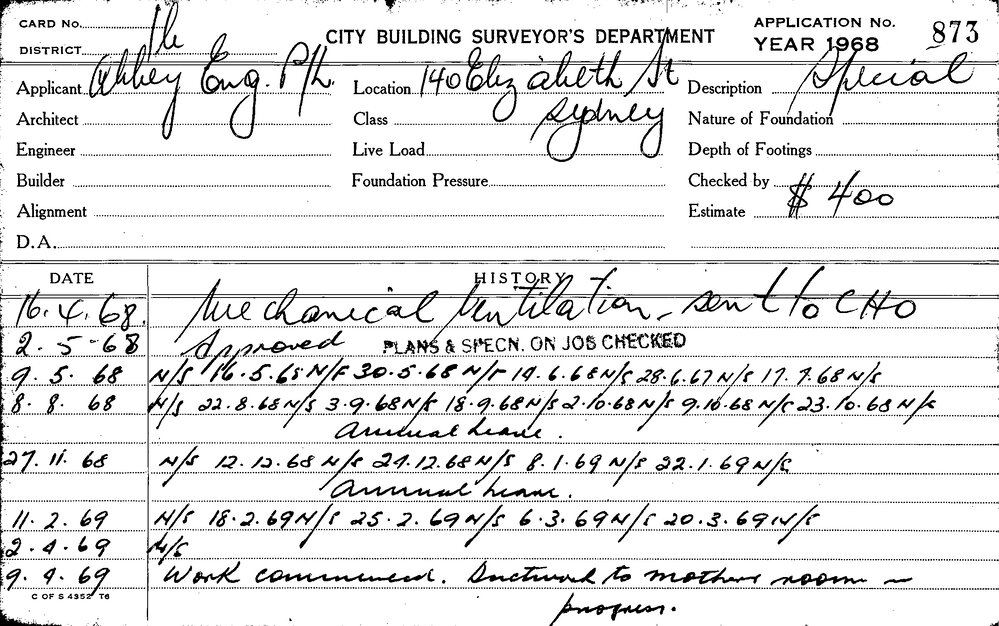 CARD No.
DISTRICT
CITY BUILDING SURVEYOR'S DEPARTMENT
APPLICATION No. 873
YEAR 1968
Applicant Abbey Eng. P/L. Location 140 Elizabeth St Description Special
Architect Class Sydney Nature of Foundation
Engineer Live Load Depth of Footings
Builder Foundation Pressure Checked by
Alignment Estimate $ 400
D.A.
DATE HISTORY
16.4.68. Mechanical Ventilation - sent to CHO
2.5-68 Approved PLANS & SPECN. ON JOB CHECKED
9.5.68 N/S 16.5.68 N/S 30.5.68 N/S 19.6.68 N/S 28.6.67 N/S 17.7.68 N/S
8.8.68 N/S 22.8.68 N/S 3.9.68 N/S 18.9.68 N/S 2.10.68 N/S 9.10.68 N/S 23.10.68 N/S
Annual Leave.
27.11.68 N/S 12.12.68 N/S 24.12.68 N/S 8.1.69 N/S 22.1.69 N/S
Annual Leave.
11.2.69 N/S 18.2.69 N/S 25.2.69 N/S 6.3.69 N/S 20.3.69 N/S
2.4.69 N/S
9.4.69 Work commenced. Ductwork to mothers room -
progress.
C OF S 4352 T6